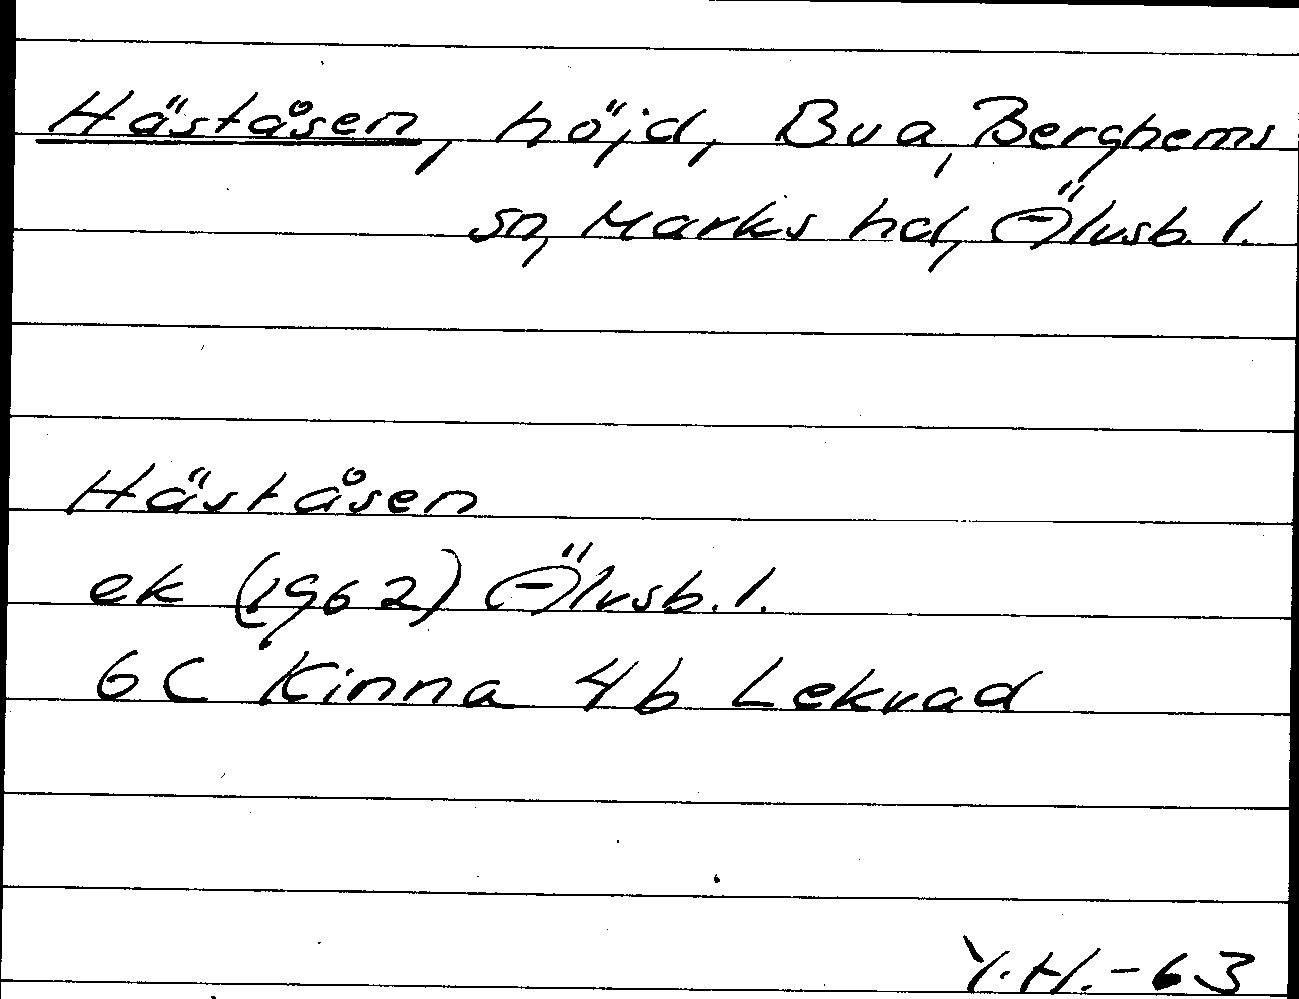 Häståsen, höjd, Bua, Berghems
sn, Marks hd, Älvsb. l.
Häståsen
ek (1962) Älvsb. l.
6C Kinna 4b Lekvad
Y.H.-63